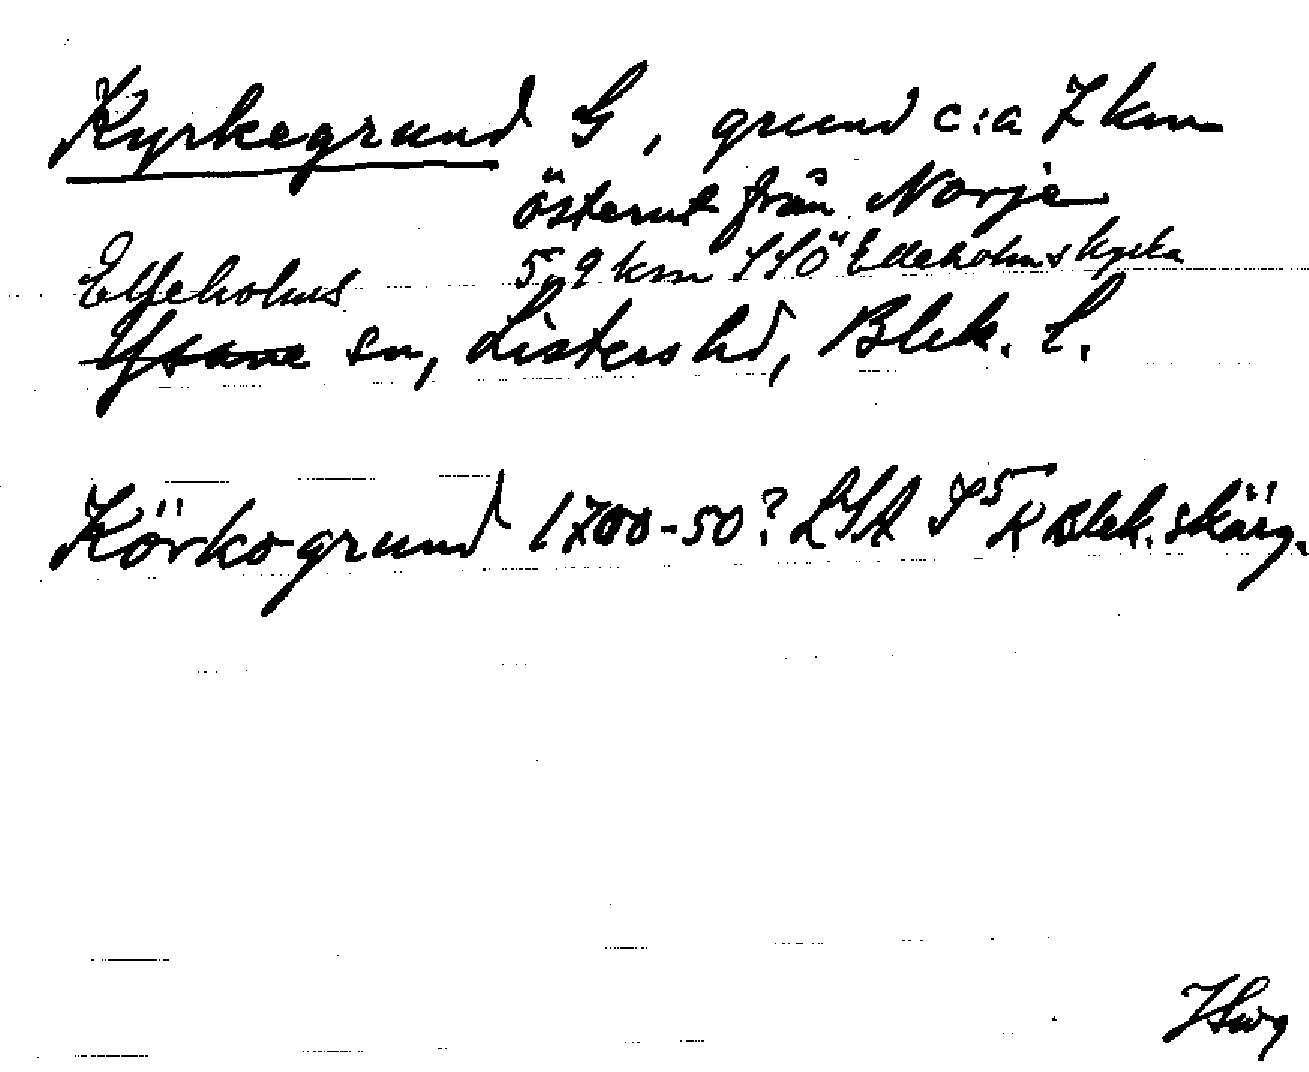 Kyrkegrund G, grund c:a 7 km
österut från Norje
5,9 km SSÖ Elleholms kyrka
Elleholms
Ysane sn, Listers hd, Blek. l.
Körkogrund 1700-50? LSA S5 K Blek. skärg.